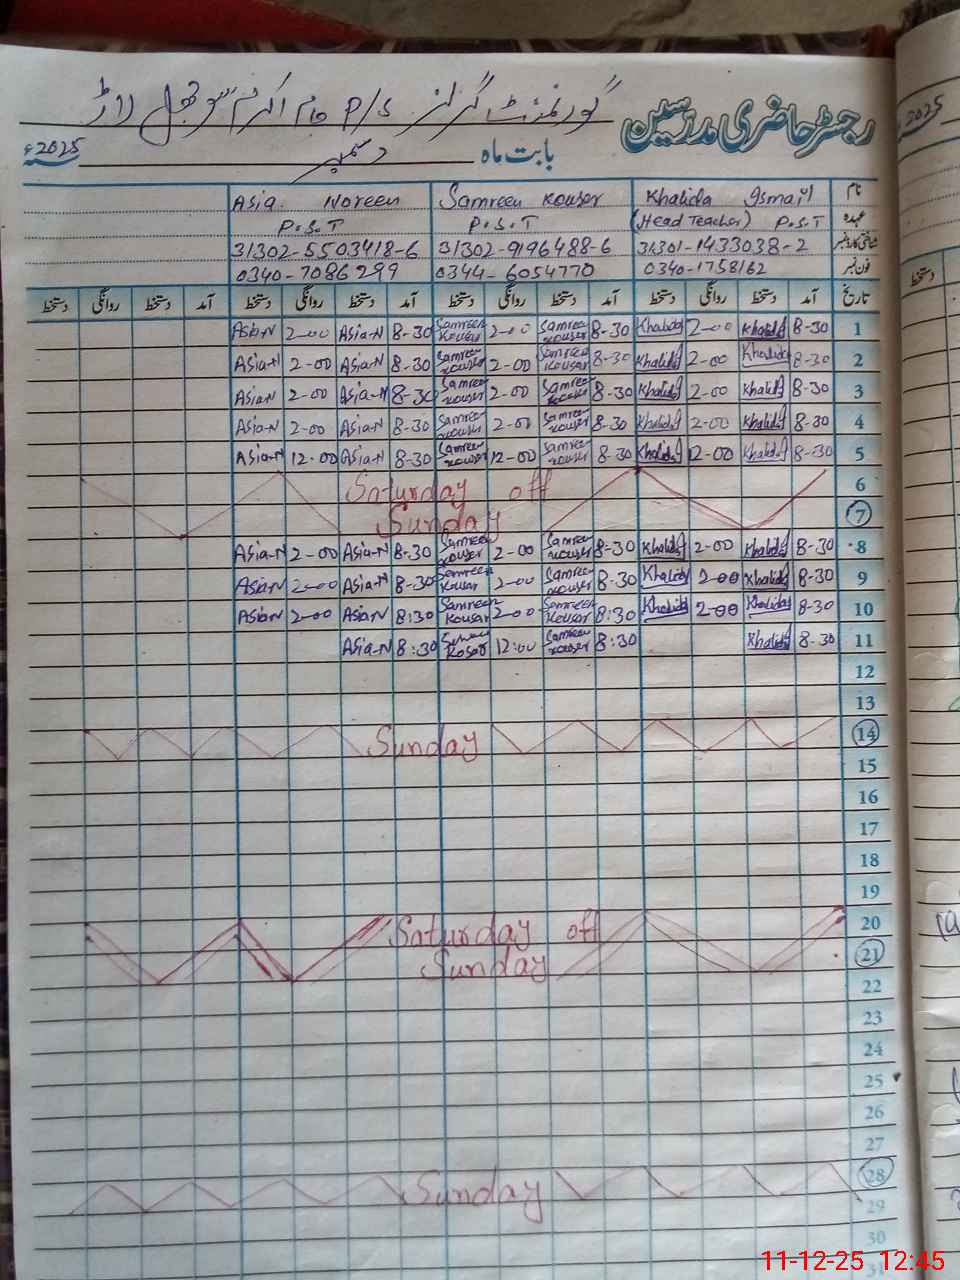 گورنمنٹ گرلز P/S جام اکرم
رجسٹر حاضری مدرسین
بابت ماہ دسمبر 2025ء
نام Khalida Ismail Samreen Kouser Asia Noreen
عہدہ (Head Teacher) P.S.T P.S.T P.S.T
شناختی کارڈ نمبر 31301-1433038-2 31302-9196488-6 31302-5503418-6
فون نمبر 0340-1758162 0344-6054770 0340-7086299
تاریخ آمد دستخط روانگی دستخط آمد دستخط روانگی دستخط آمد دستخط روانگی دستخط آمد دستخط روانگی دستخط
1 8-30 Khalida 2-00 Khalida 8-30 Samreen Kouser 2-00 Samreen Kouser 8-30 Asia-N 2-00 Asia-N
2 8-30 Khalida 2-00 Khalida 8-30 Samreen Kouser 2-00 Samreen Kouser 8-30 Asia-N 2-00 Asia-N
3 8-30 Khalida 2-00 Khalida 8-30 Samreen Kouser 2-00 Samreen Kouser 8-30 Asia-N 2-00 Asia-N
4 8-30 Khalida 2-00 Khalida 8-30 Samreen Kouser 2-00 Samreen Kouser 8-30 Asia-N 2-00 Asia-N
5 8-30 Khalida 12-00 Khalida 8-30 Samreen Kouser 12-00 Samreen Kouser 8-30 Asia-N 12-00 Asia-N
6 Saturday off
7 Sunday
8 8-30 Khalida 2-00 Khalida 8-30 Samreen Kouser 2-00 Samreen Kouser 8-30 Asia-N 2-00 Asia-N
9 8-30 Khalida 2-00 Khalida 8-30 Samreen Kouser 2-00 Samreen Kousar 8-30 Asia-N 2-00 Asia-N
10 8-30 Khalida 2-00 Khalida 8:30 Samreen Kouser 2-00 Samreen Kousar 8:30 Asia-N 2-00 Asia-N
11 8-30 Khalida 8:30 Samreen Kouser 12:00 8:30 Asia-N
12
13
14 Sunday
15
16
17
18
19
20 Saturday off
21 Sunday
22
23
24
25
26
27
28 Sunday
29
30
31
2025
11-12-25 12:45